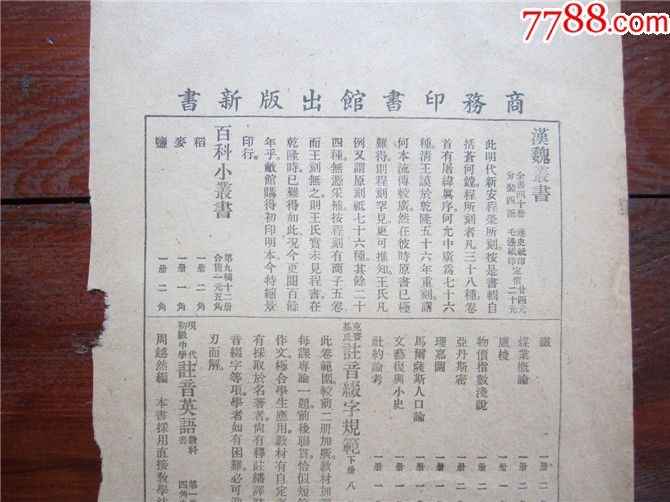 7788.com
商務印書館出版新書
漢魏叢書
全書四十册 連史紙印定價廿四元
分裝四函 毛邊紙印 二十元
此明代新安程榮所刻按是書輯自
括蒼何鏜程所刻者凡三十八種卷
首有屠緯眞序何允中廣爲七十六
種清王謨於乾隆五十六年重刻謂
何本流傳較廣然在彼時原書已極
難得則程刻罕見更可推知王氏凡
例又謂原刻祇七十六種其餘二十
四種無憑采補按程刻有商子五卷
而王刻無之則王氏實未見程書在
乾隆時已難得如此况今更閱百餘
年乎敝館購得初印明本今特縮景
印行。
百科小叢書
第九輯十二册
合售一元五角
稻 一册 二角
麥 一册 一角
鹽 一册 二角
鐵 一册 二
煤業概論 一册 二
廬梭 一册 一
物價指數淺說 一册
亞丹斯密 一册
理嘉圖 一册 一
馬爾薩斯人口論 一册
文藝復興小史 一册 一
社約論考 一册 一
克賽基氏 註音綴字規範 下册 八
此卷範圍較前二册加廣教材加
每課專論一題前後聯貫恰似短
作文極合學生應用教材有自定
有採取於名著者尙有釋註繙譯
音綴字等項學者如有困難必可迎
刃而解。
現代初級中學 註音英語 教科書 第一
四角
周越然編 本書採用直接教學